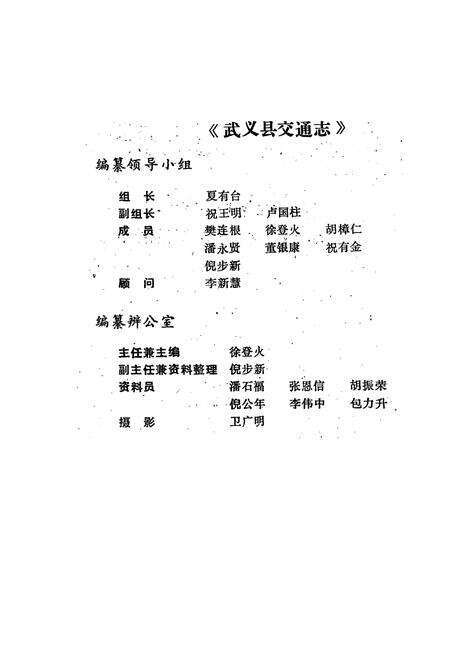 《武义县交通志》
编纂领导小组
组 长 夏有台
副组长 祝王明 卢国柱
成 员 樊连根 徐登火 胡樟仁
潘永贤 董银康 祝有金
倪步新
顾 问 李新慧
编纂辨公室
主任兼主编 徐登火
副主任兼资料整理 倪步新
资料员 潘石福 张恩信 胡振荣
倪公年 李伟中 包力升
摄 影 卫广明